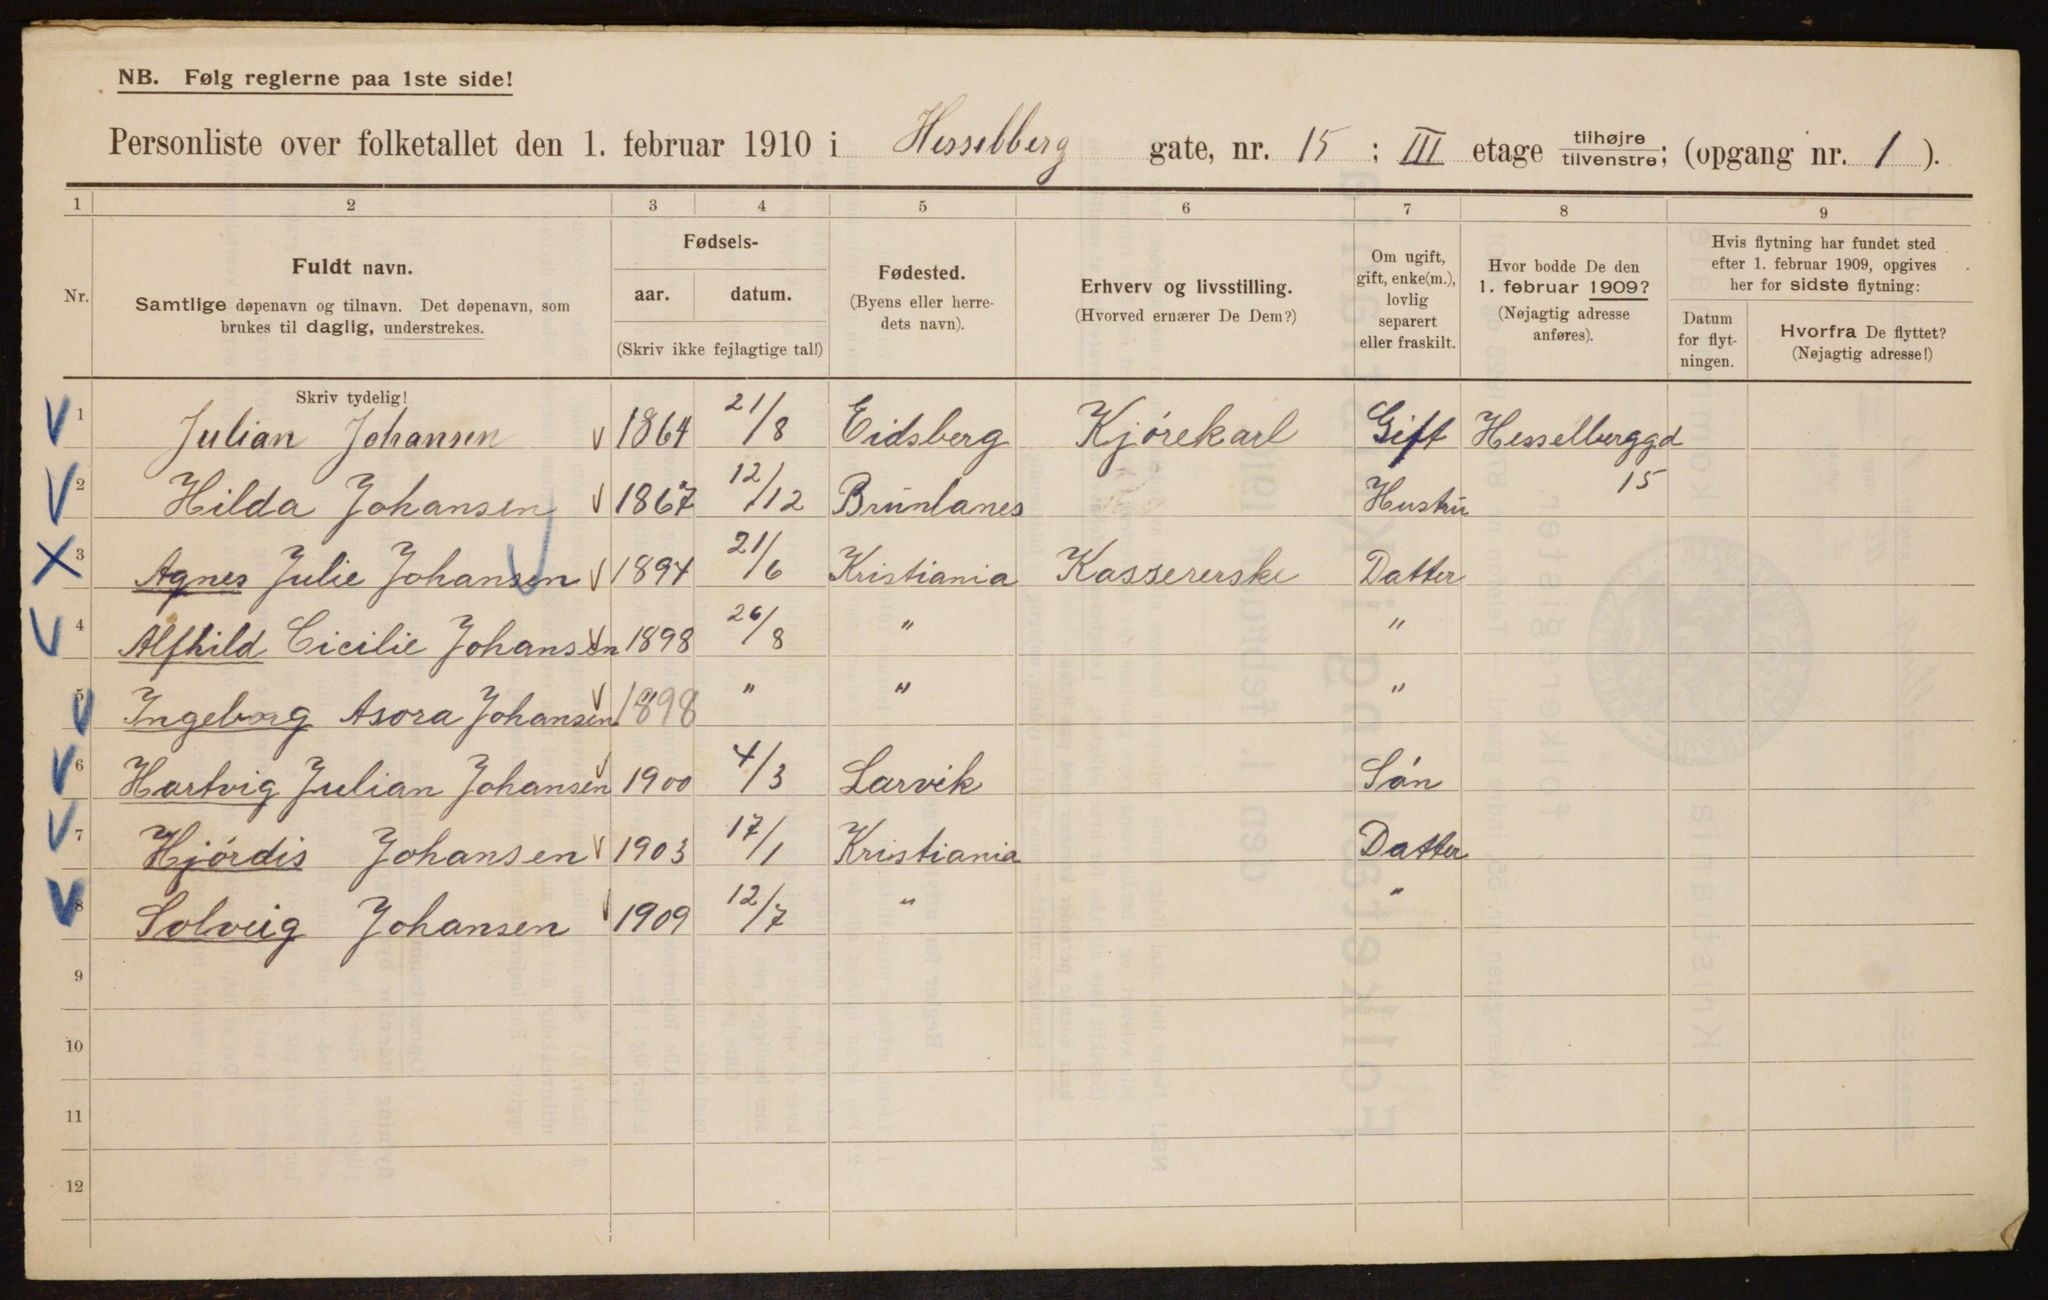 NB. Følg reglerne paa 1ste side!
Personliste over folketallet den 1. februar 1910 i Hesselberg gate, nr. 15 ; III etage tilhøjre/tilvenstre; (opgang nr. 1 ).
1 2 3 4 5 6 7 8 9
Nr.
Fuldt navn.
Samtlige døpenavn og tilnavn. Det døpenavn, som
brukes til daglig, understrekes.
Fødsels-
aar. datum.
(Skriv ikke fejlagtige tal!)
Fødested.
(Byens eller herre-
dets navn).
Erhverv og livsstilling.
(Hvorved ernærer De Dem?)
Om ugift,
gift, enke(m.),
lovlig
separert
eller fraskilt.
Hvor bodde De den
1. februar 1909?
(Nøjagtig adresse
anføres).
Hvis flytning har fundet sted
efter 1. februar 1909, opgives
her for sidste flytning:
Datum
for flyt-
ningen.
Hvorfra De flyttet?
(Nøjagtig adresse!)
Skriv tydelig!
1 Julian Johansen 1864 21/8 Eidsberg Kjørekarl Gift Hesselberggd
2 Hilda Johansen 1867 12/12 Brunlanes Hustru 15
3 Agnes Julie Johansen 1894 21/6 Kristiania Kassererske Datter
4 Alfhild Cicilie Johansen 1898 26/8 " "
5 Ingeborg Asora Johansen 1898 " " "
6 Hartvig Julian Johansen 1900 4/3 Larvik Søn
7 Hjørdis Johansen 1903 17/1 Kristiania Datter
8 Solveig Johansen 1909 12/7 " "
9
10
11
12